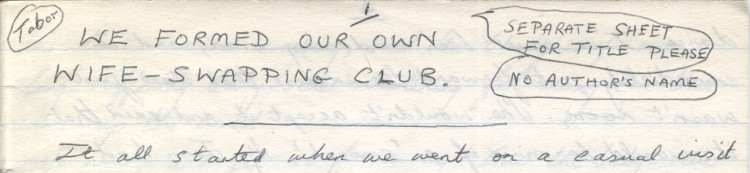 Tabor
1
WE FORMED OUR OWN
WIFE-SWAPPING CLUB.
SEPARATE SHEET
FOR TITLE PLEASE
NO AUTHOR'S NAME
It all started when we went on a casual visit